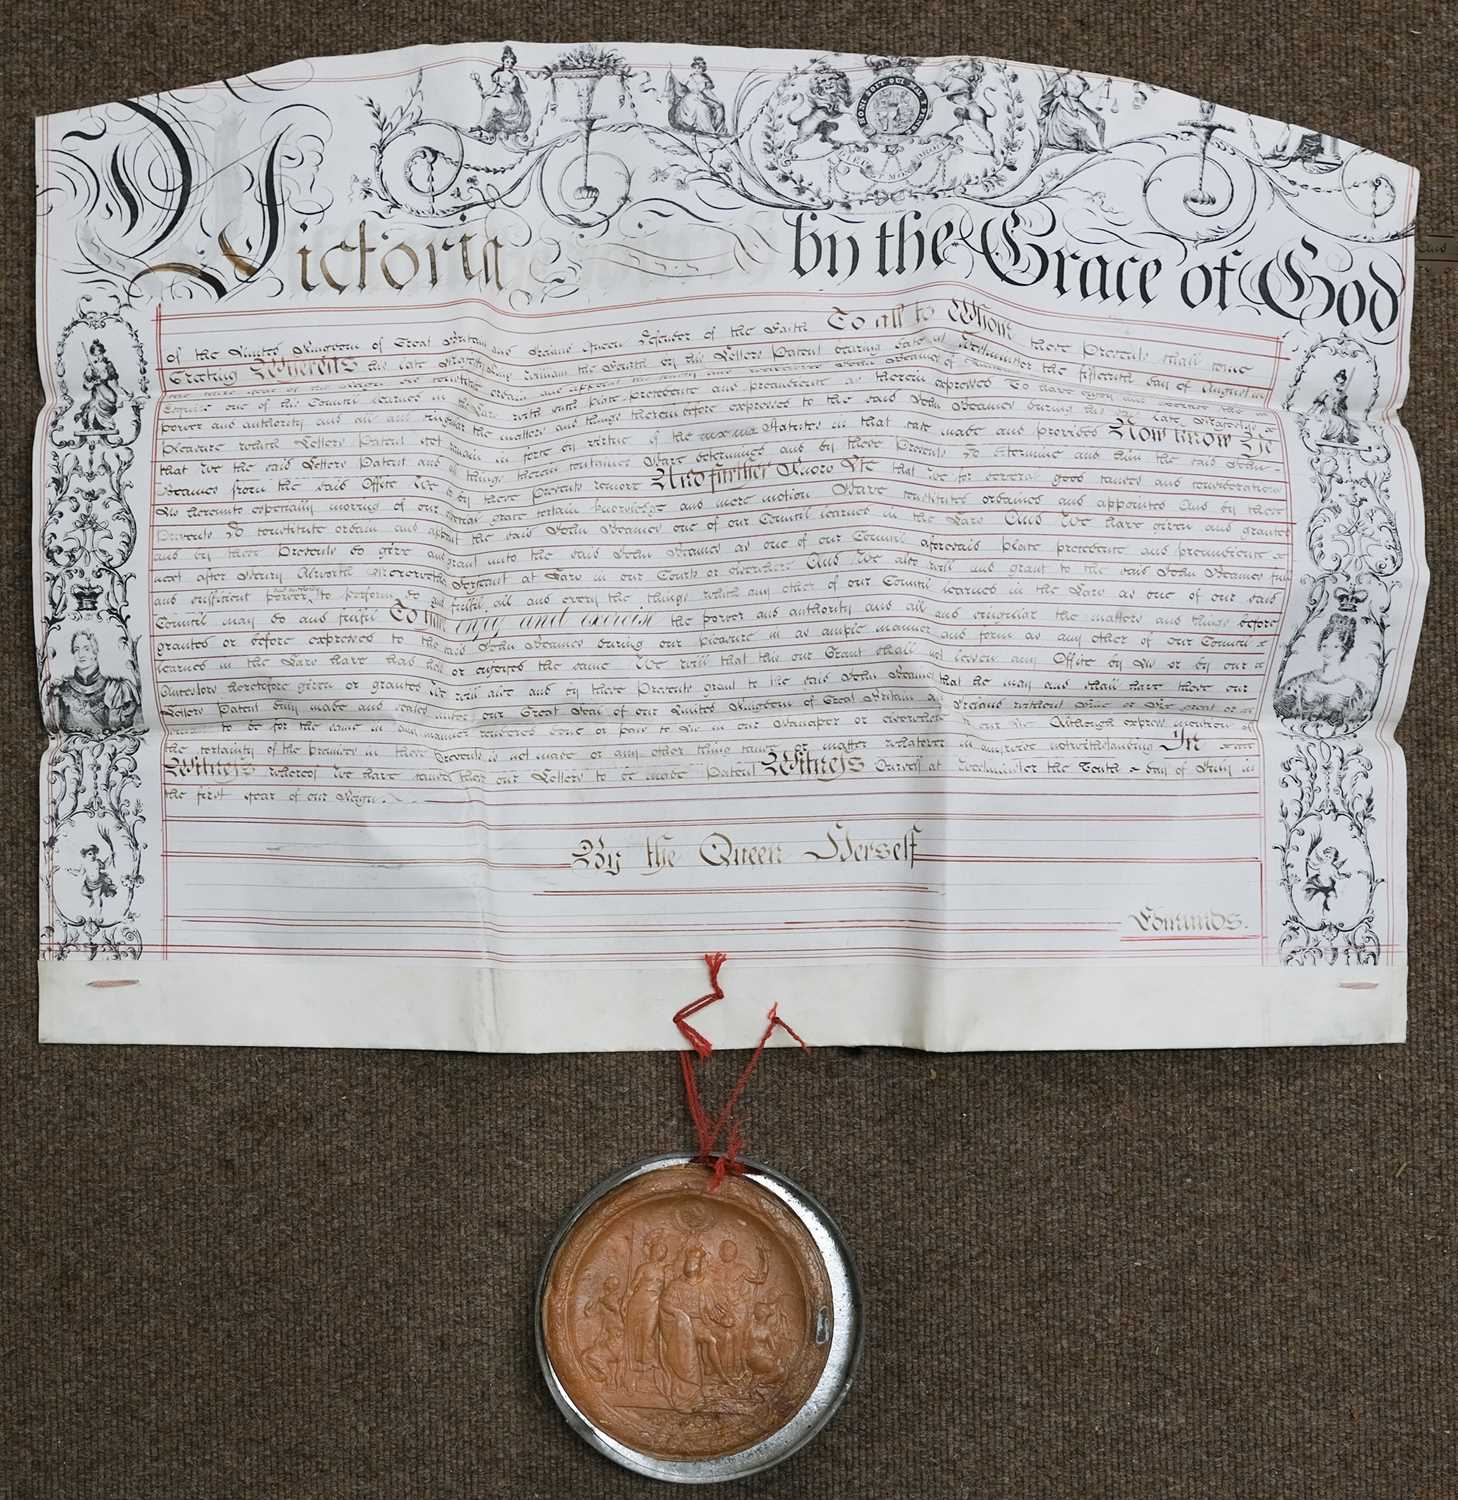 HONI SOIT QUI MAL Y PENSE
Victoria by the Grace of God
of the United Kingdom of Great Britain and Ireland Queen Defender of the Faith To all to Whom these Presents shall come
Greeting Whereas his late Majesty King William the Fourth by his Letters Patent bearing date at Westminster the fifteenth day of August in
the year of his Reign did constitute ordain and appoint the John Beames of
Esquire one of his Council learned in the Law with such place precedence and preaudience as therein expressed To have enjoy and exercise the
power and authority and all and singular the matters and things therein before expressed to the said John Beames during his said late Majestys
pleasure which Letters Patent yet remain in force by virtue of the Statutes in that case made and provided Now know Ye
that We the said Letters Patent and all things therein contained Have determined and by these Presents Do determine and him the said John
Beames from the said Office We do by these Presents remove And further Know Ye that We for several good causes and considerations
Us hereunto especially moving of our special grace certain knowledge and mere motion Have constituted ordained and appointed And by these
Presents Do constitute ordain and appoint the said John Beames one of our Council learned in the Law And We have given and granted
and by these Presents do give and grant unto the said John Beames as one of our Council aforesaid place precedence and preaudience
next after Henry Alworth Merewether Serjeant at Law in our Courts or elsewhere And We also will and grant to the said John Beames full
and sufficient power and authority to perform do and fulfil all and every the things which any other of our Council learned in the Law as one of our said
Council may do and fulfil To have enjoy and exercise the power and authority and all and singular the matters and things before
granted or before expressed to the said John Beames during our pleasure in as ample manner and form as any other of our Council
learned in the Law have had held or enjoyed the same We will that this our Grant shall not lessen any Office by Us or by our
Ancestors heretofore given or granted We will also and by these Presents grant to the said John Beames that he may and shall have these our
Letters Patent duly made and sealed under our Great Seal of our United Kingdom of Great Britain and Ireland without Fine or Fee great or
small to be for the same in any manner rendered done or paid to Us in our Hanaper or elsewhere to our use Although express mention of
the certainty of the premises in these Presents is not made or any other thing cause or matter whatsoever in anywise notwithstanding In
Witness whereof We have caused these our Letters to be made Patent Witness Ourself at Westminster the Tenth day of July in
the first year of our Reign
By the Queen Herself
Edmunds.